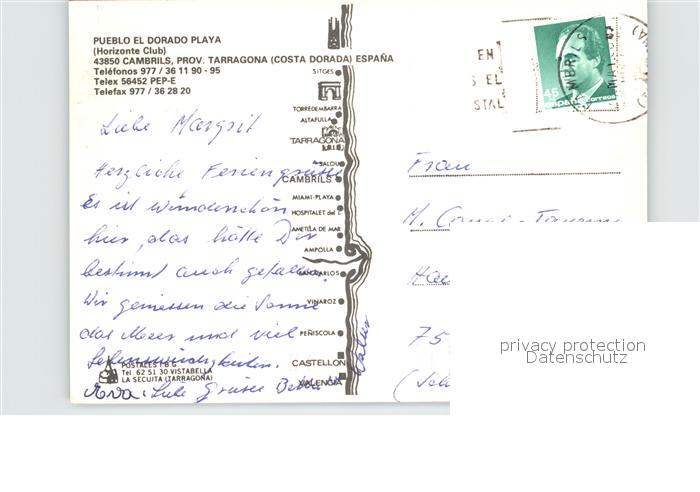 PUEBLO EL DORADO PLAYA
(Horizonte Club)
43850 CAMBRILS, PROV. TARRAGONA (COSTA DORADA) ESPAÑA
Teléfonos 977 / 36 11 90 - 95
Telex 56452 PEP-E
Telefax 977 / 36 28 20
EN
S EL
STAL
45
ESPAÑA correos
SITGES
TORREDEMBARRA
ALTAFULLA
TARRAGONA
SALOU
CAMBRILS
MIAMI-PLAYA
HOSPITALET del I.
AMETLLA DE MAR
AMPOLLA
SAN CARLOS
VINAROZ
PEÑISCOLA
CASTELLON
VALENCIA
Liebe Margrit
Herzliche Feriengrüsse
Es ist wunderschön
hier, das hätte Dir
bestimmt auch gefallen.
Wir geniessen die Sonne
das Meer und viel
Sehenswürdigkeiten.
Eva. Liebe Grüsse
POSTALES I.B.G.
Tel. 62 51 30 VISTABELLA
LA SECUITA (TARRAGONA)
Frau
M.
75
privacy protection
Datenschutz